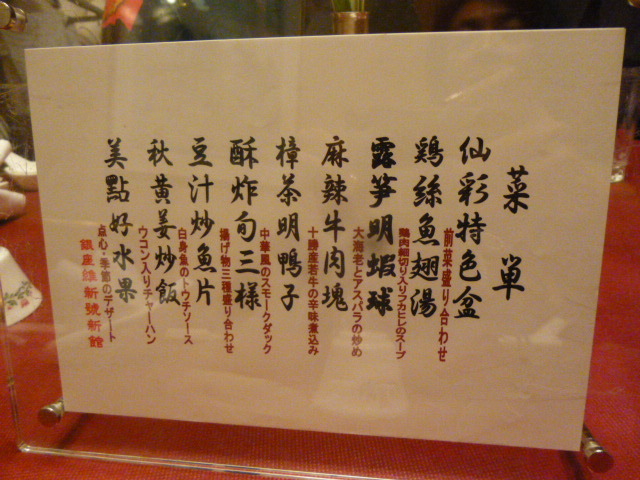 菜単
仙彩特色盆
前菜盛り合わせ
鶏絲魚翅湯
鶏肉細切り入りフカヒレのスープ
露笋明蝦球
大海老とアスパラの炒め
麻辣牛肉塊
十勝産若牛の辛味煮込み
樟茶明鴨子
中華風のスモークダック
酥炸旬三様
揚げ物三種盛り合わせ
豆汁炒魚片
白身魚のトウチソース
秋黄姜炒飯
ウコン入りチャーハン
美點好水果
点心・季節のデザート
銀座維新號新館